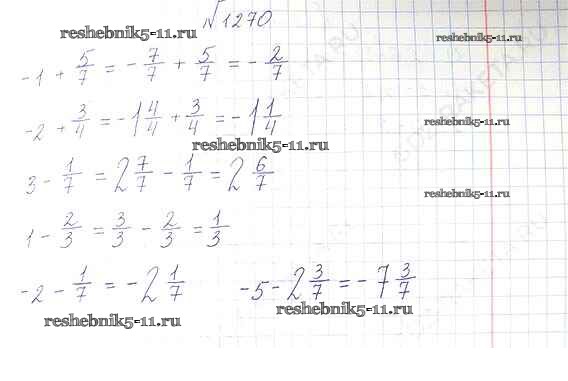 √1270
reshebnik5-11.ru
-1 + 5/7 = -7/7 + 5/7 = -2/7
reshebnik5-11.ru
-2 + 3/4 = -1 4/4 + 3/4 = -1 1/4
reshebnik5-11.ru
reshebnik5-11.ru
3 - 1/7 = 2 7/7 - 1/7 = 2 6/7
reshebnik5-11.ru
1 - 2/3 = 3/3 - 2/3 = 1/3
-2 - 1/7 = -2 1/7 -5 - 2 3/7 = -7 3/7
reshebnik5-11.ru reshebnik5-11.ru